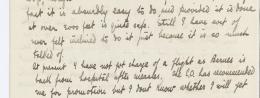 fact it is absurdly easy to do and provided it is done
at over 2000 feet is quite safe. Still I have not
ever felt inclined to do it just because it is so much
talked of.
At present I have got charge of a flight as Barnes is
back from hospital after measles. The C.O. has recommended
me for promotion but I dont know whether I will get